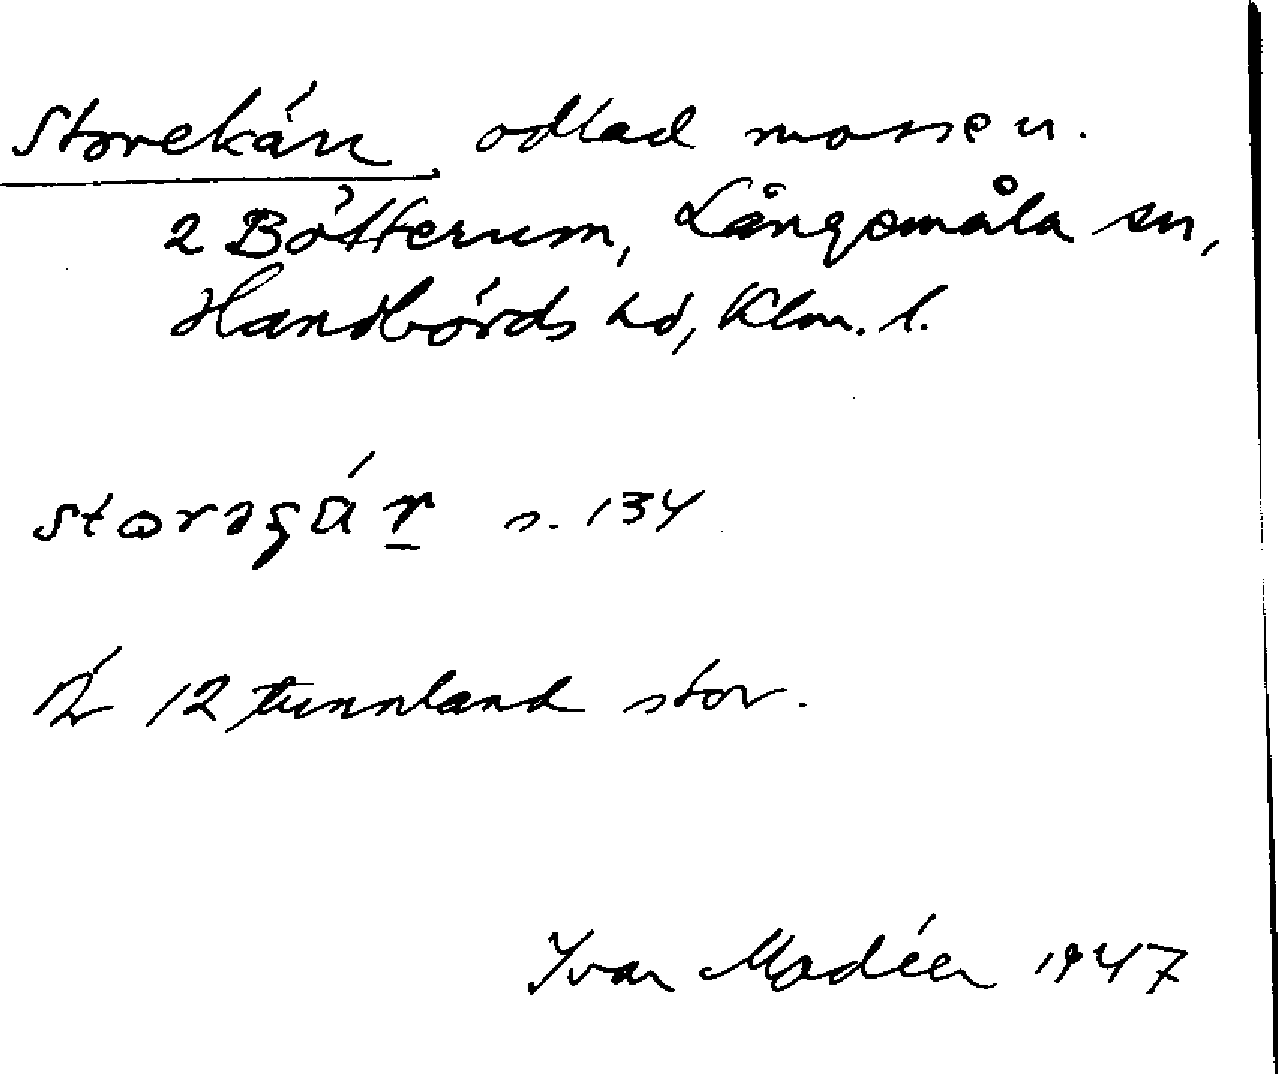 Storekärr odlad mosse u.
2 Bötterum, Långemåla sn,
Handbörds hd, Klm. l.
storagár s. 134
Är 12 tunnland stor.
Ivar Modéer 1947